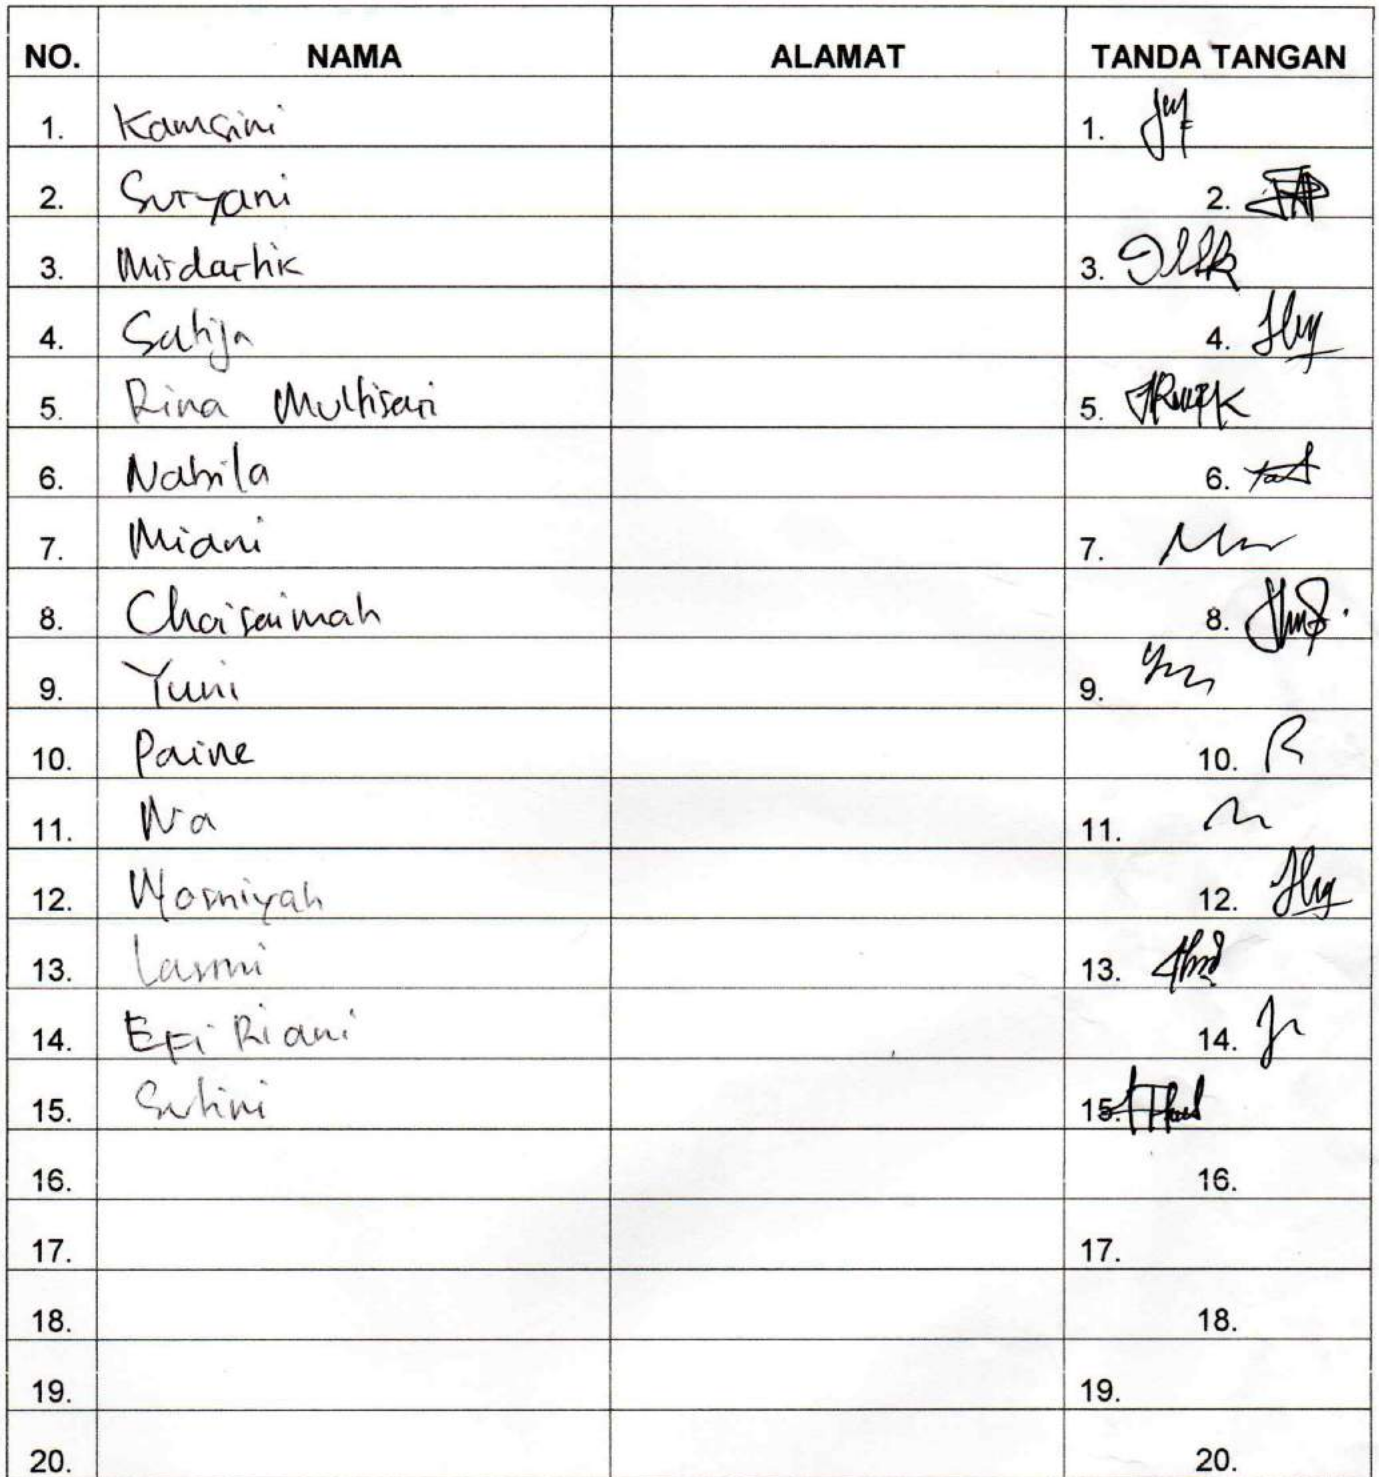 NO. NAMA ALAMAT TANDA TANGAN
1. Kamsini 1.
2. Suryani 2.
3. Misdartik 3.
4. Satija 4.
5. Rina Multisari 5.
6. Nabila 6.
7. Miani 7.
8. Choisaimah 8.
9. Yuni 9.
10. Paine 10.
11. 11.
12. 12.
13. Lasmi 13.
14. Efi Riani 14.
15. Sutini 15.
16. 16.
17. 17.
18. 18.
19. 19.
20. 20.